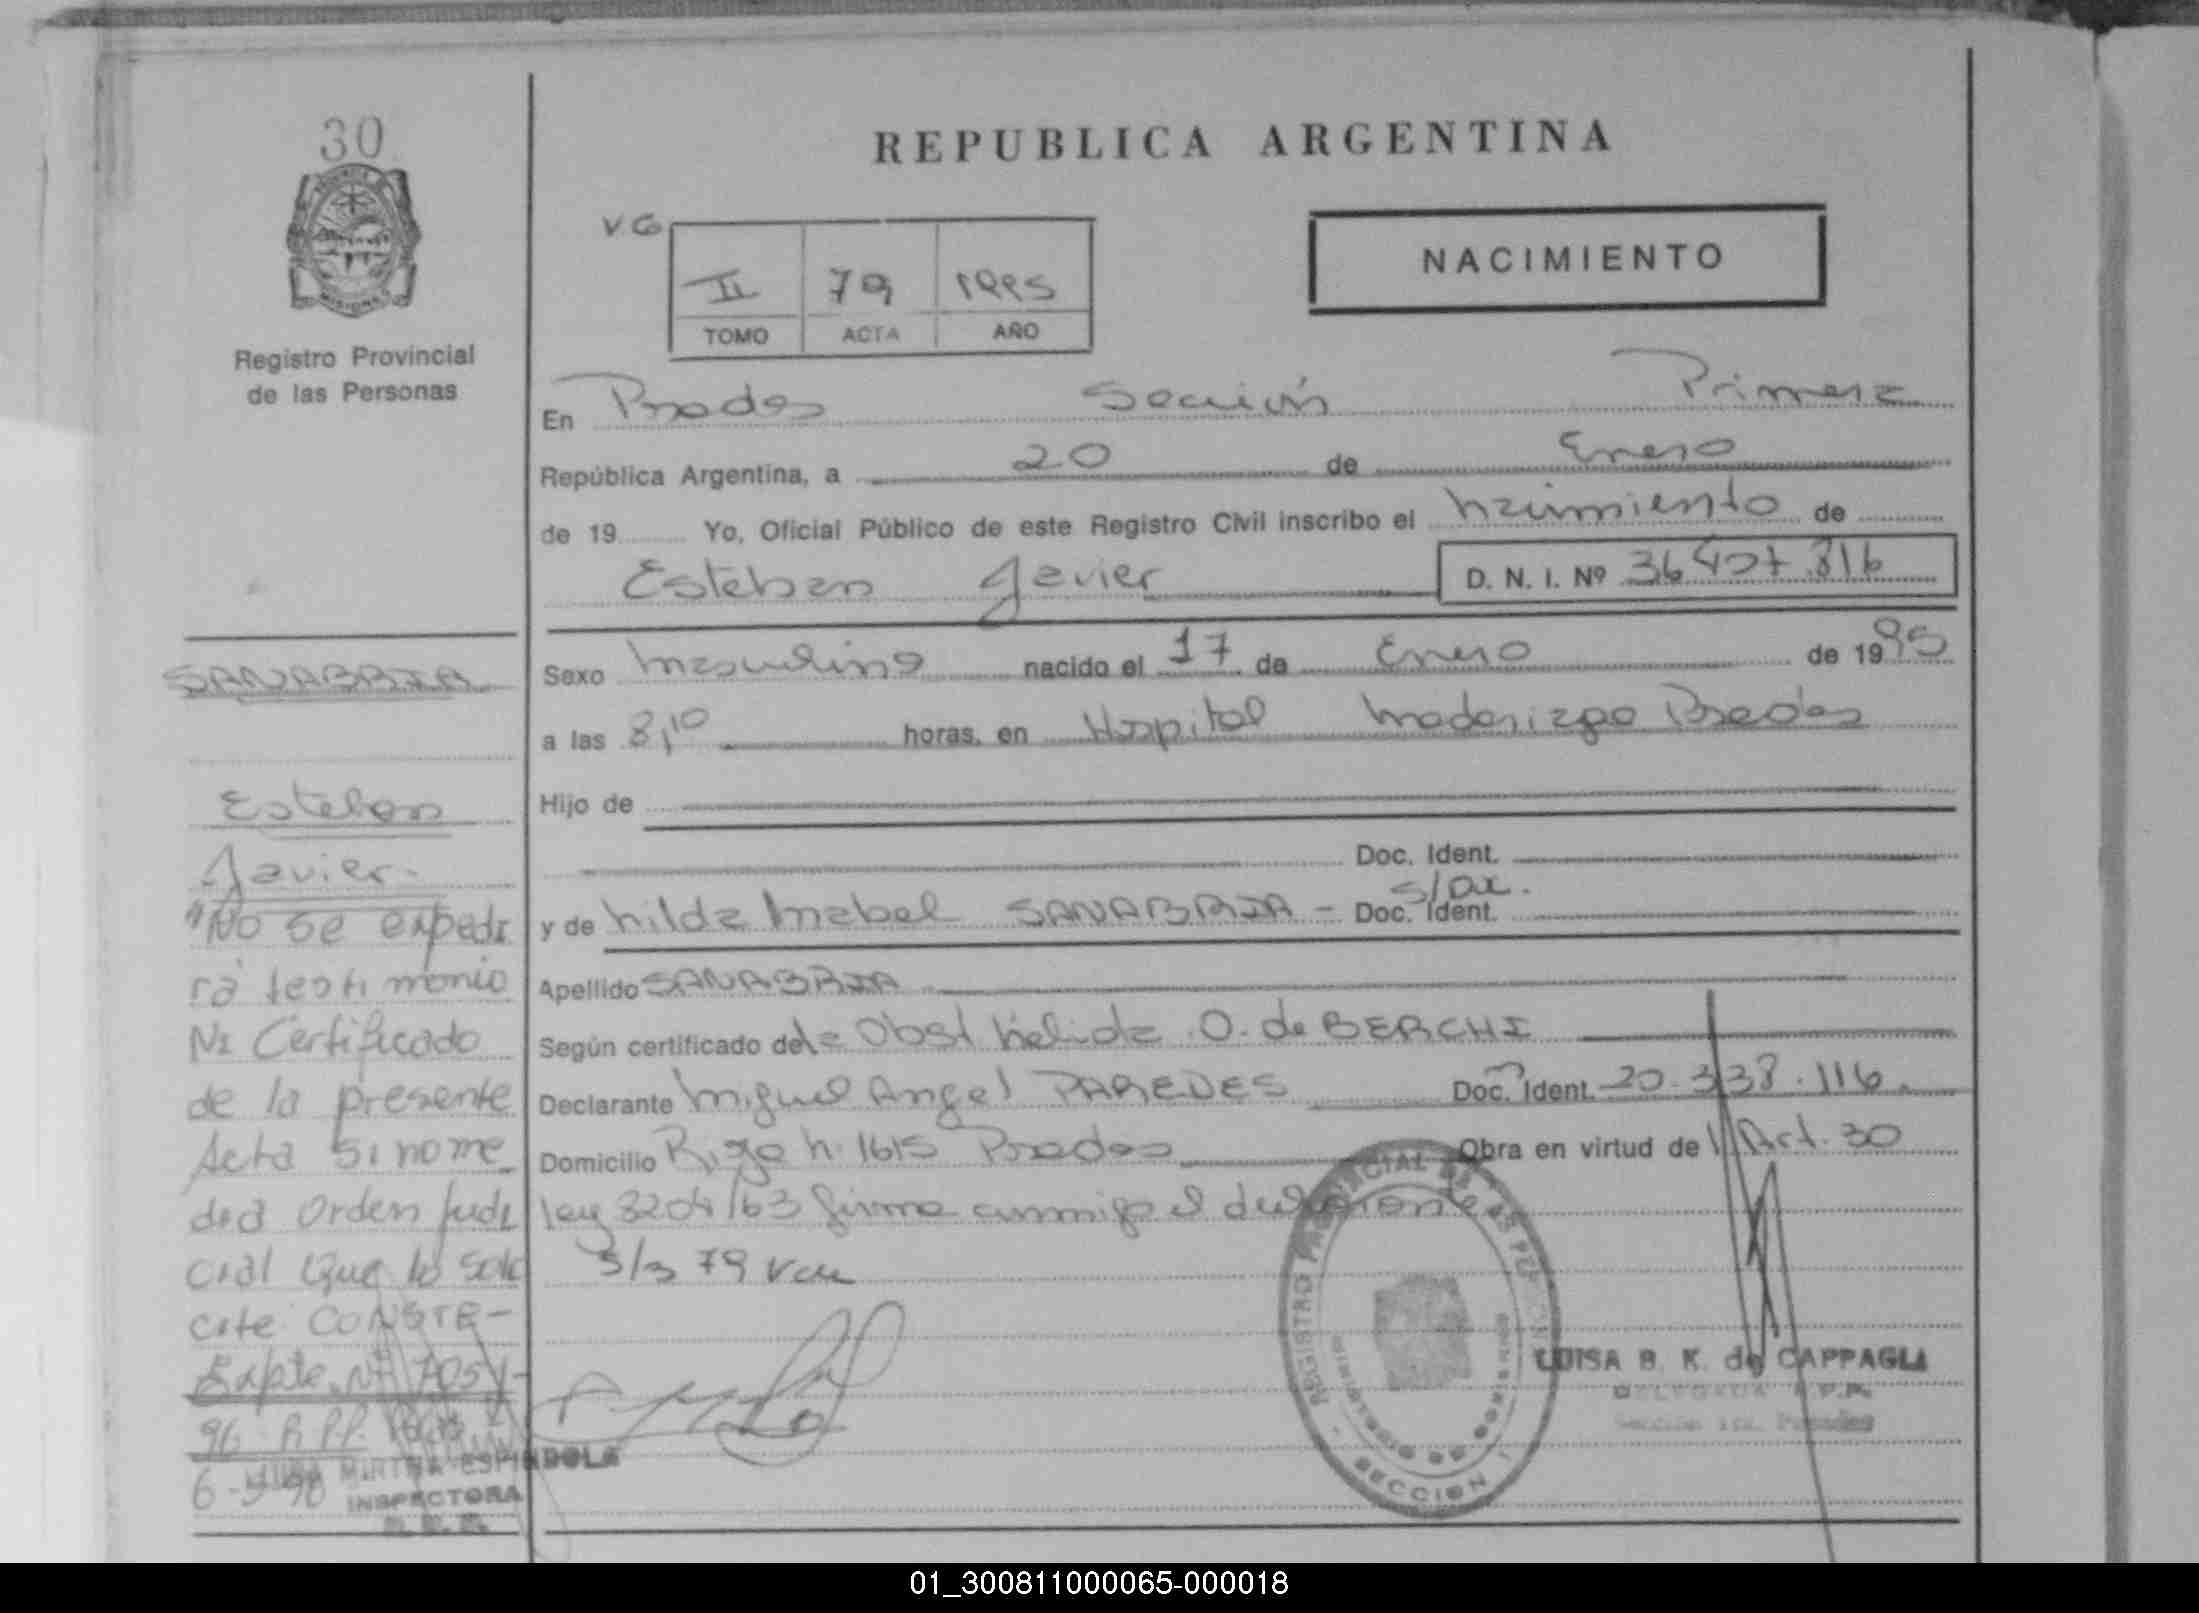 30
REPUBLICA ARGENTINA
V G
II 79 1995
TOMO ACTA AÑO
NACIMIENTO
Registro Provincial
de las Personas
En Psdas Sección Primera
República Argentina, a 20 de Enero
de 19 Yo, Oficial Público de este Registro Civil inscribo el nacimiento de
Esteban Javier D. N. I. Nº 36 407 816
SANABRIA
Sexo masculino nacido el 17 de Enero de 1995
a las 8,10 horas, en Hospital Madariaga Psdas
Esteban
Javier.
Hijo de
Doc. Ident.
y de Nilda Mabel SANABRIA - Doc. Ident.
Apellido SANABRIA
Según certificado de la Obst Nelida O. de BERCHI
Declarante Miguel Angel PAREDES Doc. Ident. 20.338.116.
Domicilio Obra en virtud de Art. 30
ley 3204/63 firma conmigo el declarante
79
"No se expedi
rá testimonio
Ni Certificado
de la presente
Acta si no me
dia Orden Judi
cial que lo soli
cite CONSTE-
Expte. Nº 7054-
96 R.P.P.
MIRTHA ESPINDOLA
INSPECTORA
R. P. P.
REGISTRO PROVINCIAL DE LAS PERSONAS
MINISTERIO DE GOBIERNO
SECCION 1
LUISA B. K. de CAPPAGLI
DELEGADA R.P.P.
Sección 1ra. Posadas
01_300811000065-000018